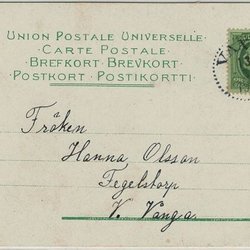 UNION POSTALE UNIVERSELLE
· CARTE POSTALE ·
· BREFKORT · BREVKORT ·
POSTKORT · POSTIKORTTI ·
Fröken
Hanna Olsson
Fegelstorp
V. Vånga